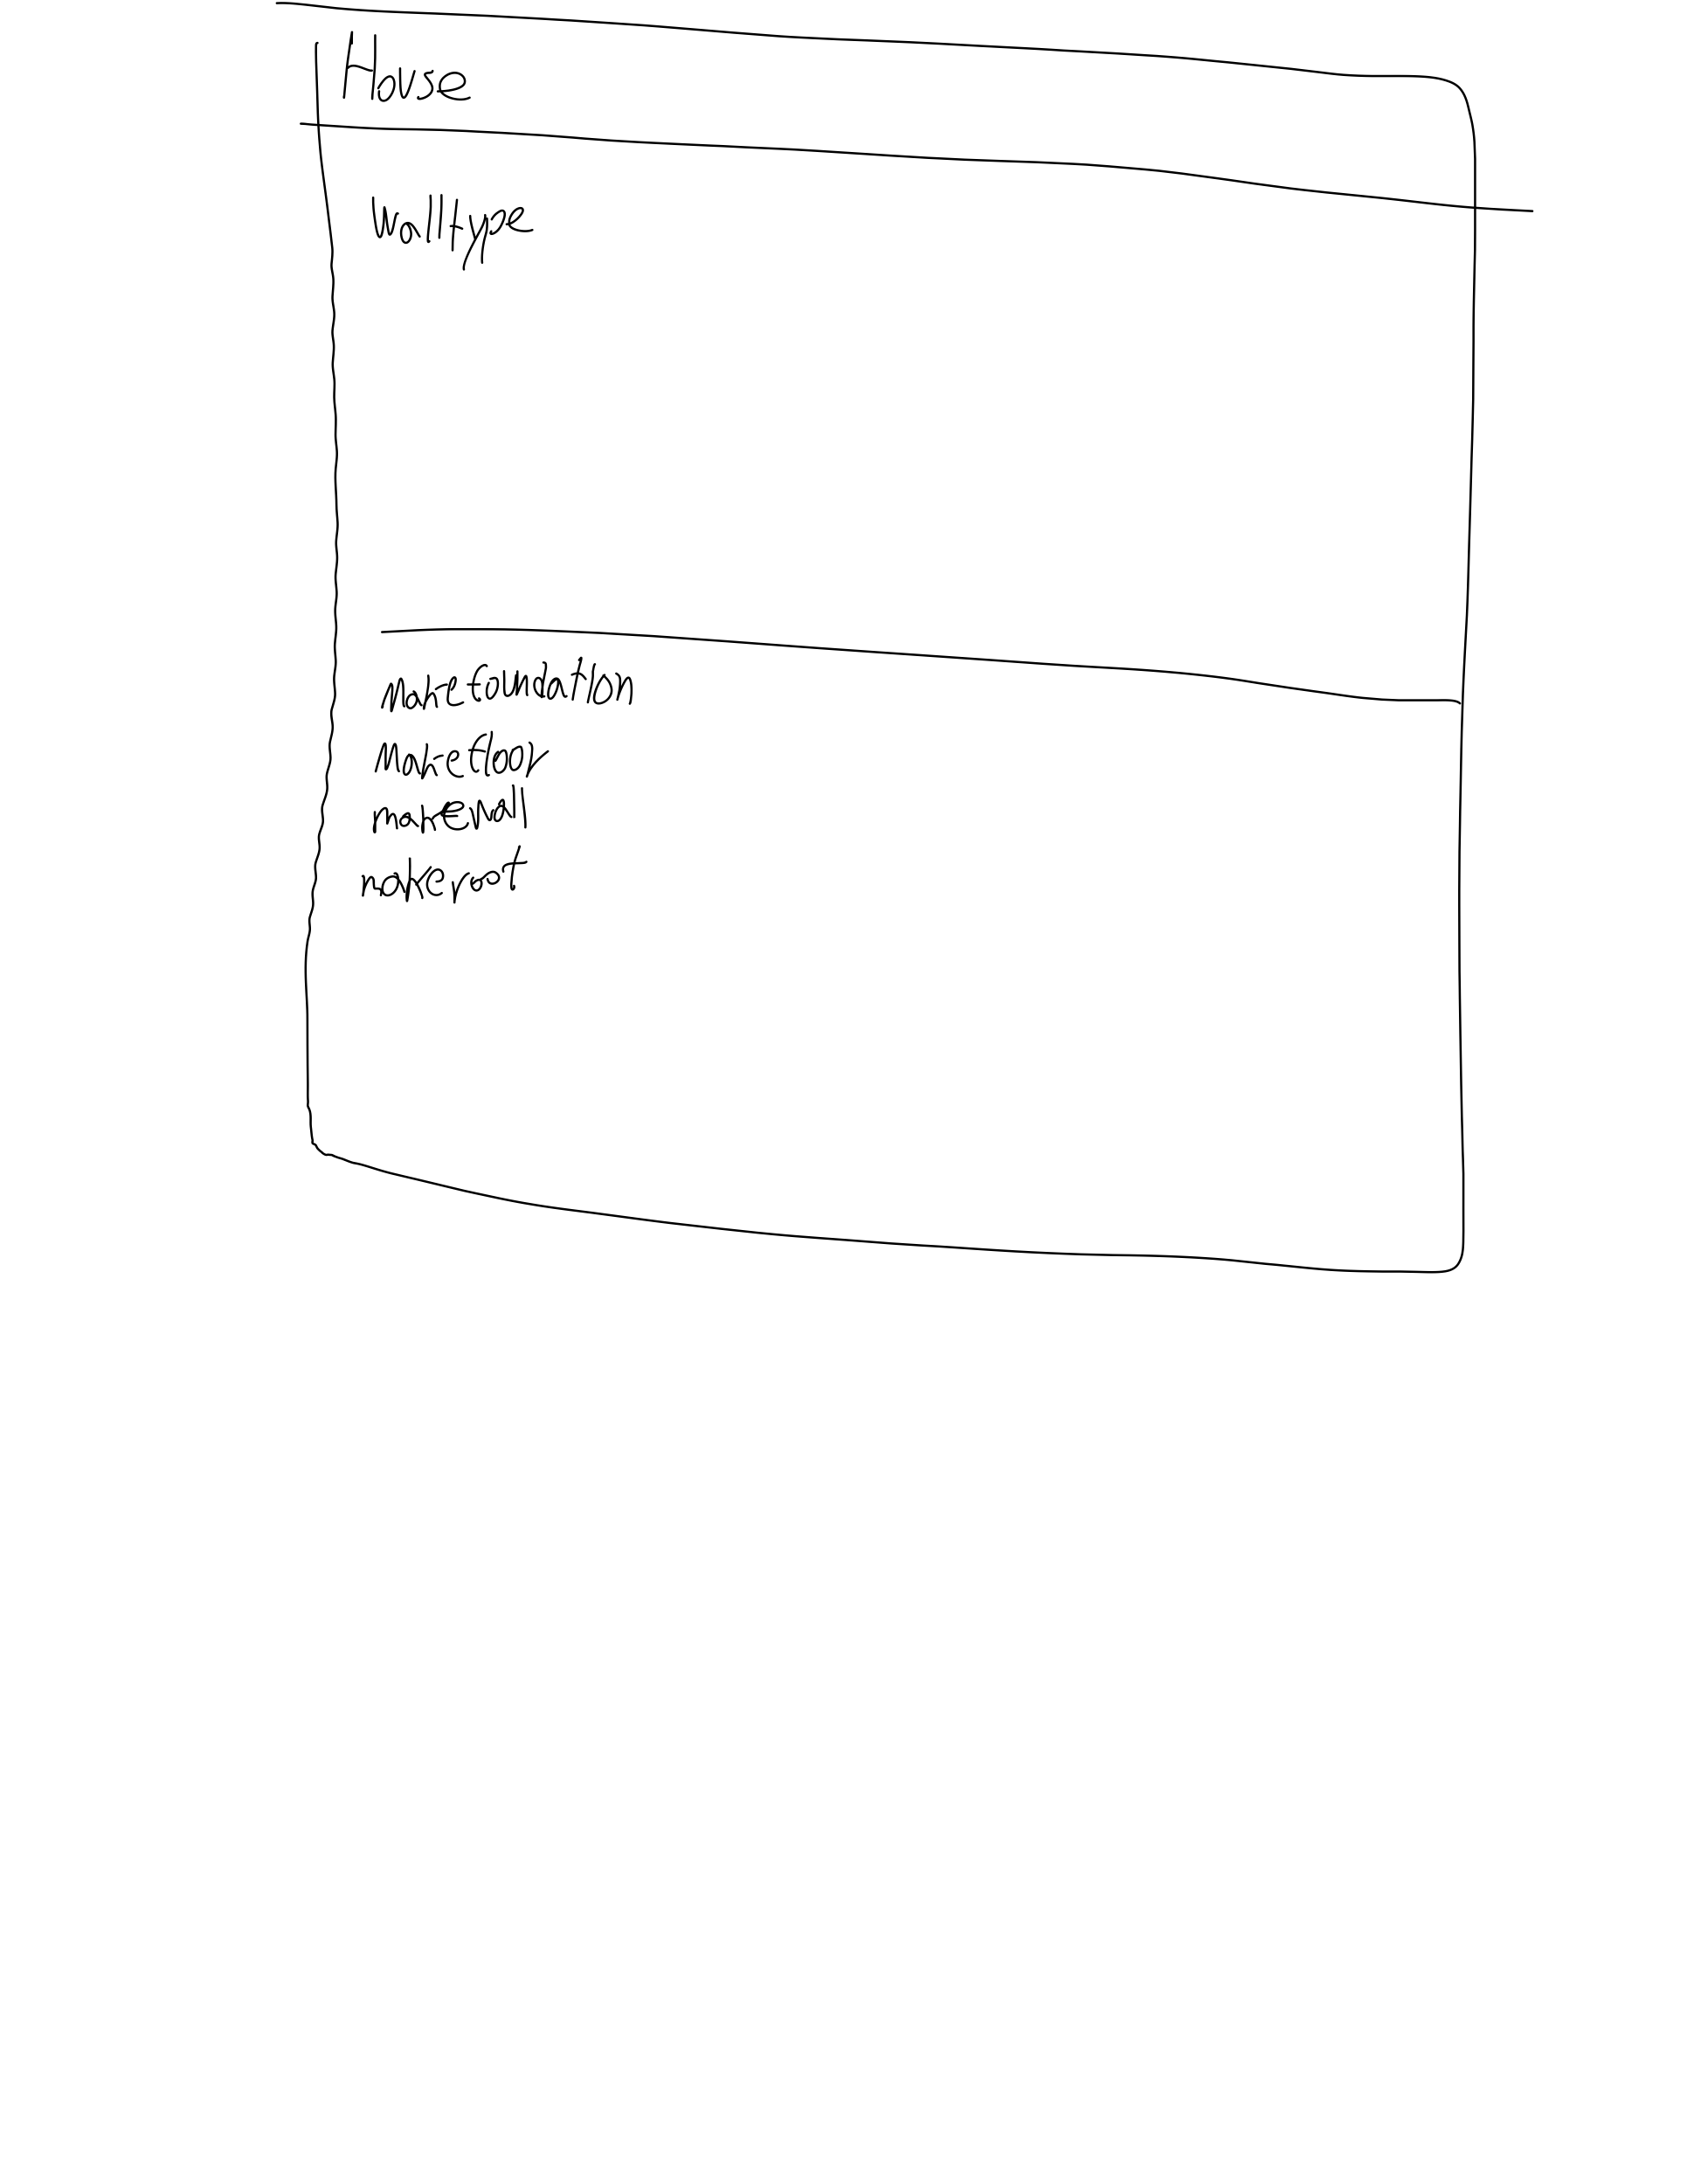 House
Walltype
Makefoundation
Makefloor
makewall
makeroof